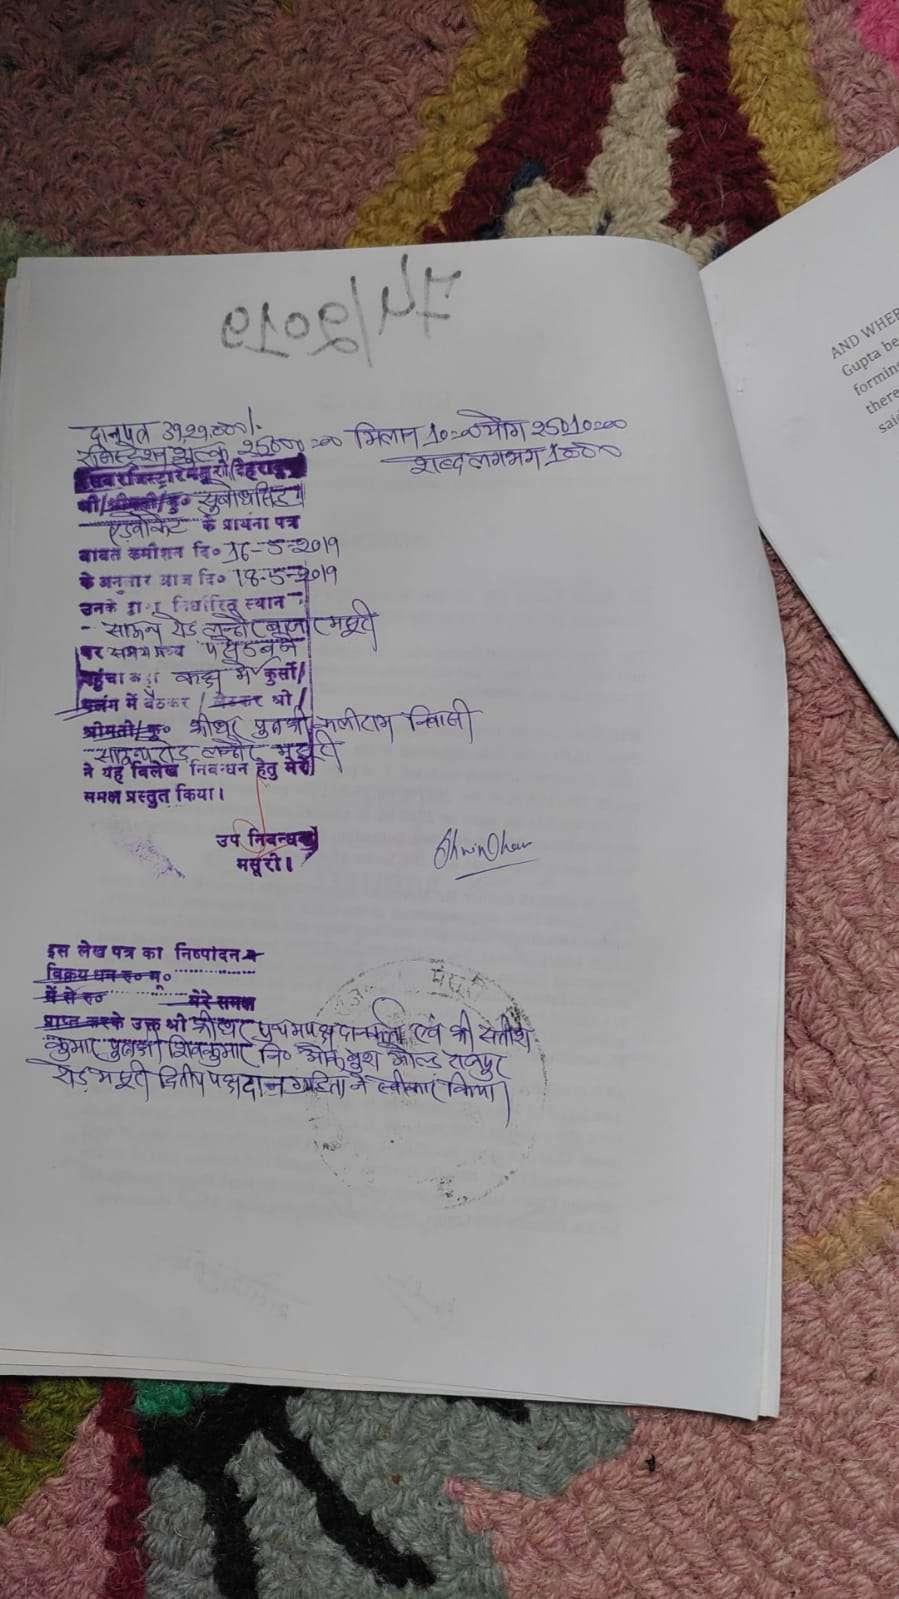 74/2019
दानपत्र 3922000/-
रजिस्ट्रेशन शुल्क 25000=00 मिलान 10=00 योग 25010=00
शब्द लगभग 1000
श्री/श्रीमती/कु० सुबोध सिंह
एडवोकेट के प्रार्थना पत्र
बाबत कमीशन दि० 16-5-2019
के अनुसार आज दि० 18-5-2019
उनके द्वारा निर्धारित स्थान
रोड लन्ढौर बाजार मसूरी
पर समय मध्य
पहुंचा कक्ष में कुर्सी/
पलंग में बैठकर / लेटकर श्री/
श्रीमती/कु० श्रीधर पुत्र श्री कालीराम निवासी
रोड लन्ढौर मसूरी
ने यह विलेख निबन्धन हेतु मेरे
समक्ष प्रस्तुत किया।
उप निबन्धक
मसूरी।
इस लेख पत्र का निष्पादन व
विक्रय धन रु० मु०
में से रु० मेरे समक्ष
प्राप्त करके उक्त श्री श्रीधर प्रथम पक्ष दानकर्ता एवं श्री सतीश
कुमार पुत्र श्री शिवकुमार नि० ओल्ड राजपुर
रोड मसूरी द्वितीय पक्ष दान ग्रहिता ने स्वीकार किया।
मसूरी
AND WHER
Gupta be
forming
there
said